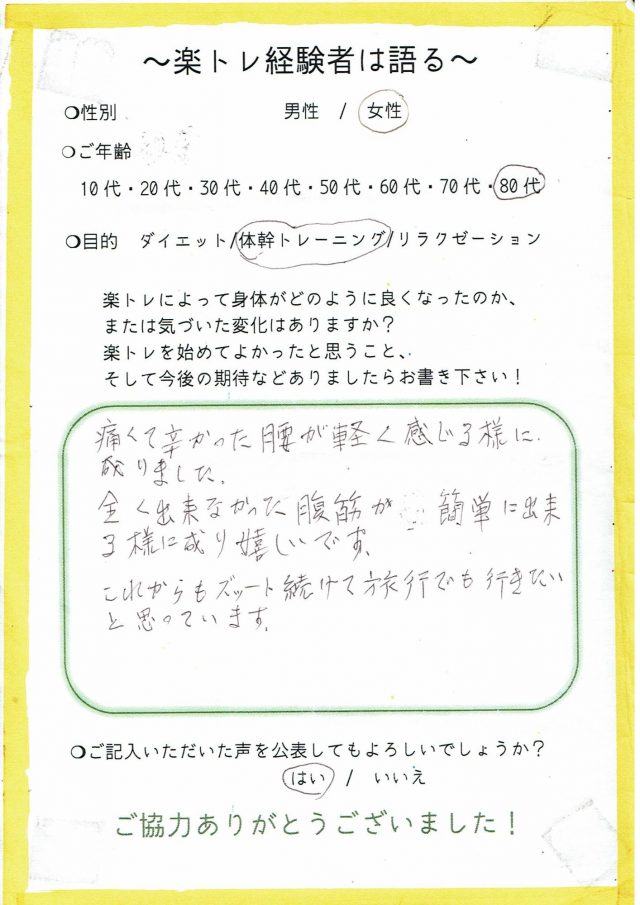 ～楽トレ経験者は語る～
❍性別 男性 / 女性
❍ご年齢
10代・20代・30代・40代・50代・60代・70代・80代
❍目的 ダイエット/体幹トレーニング/リラクゼーション
楽トレによって身体がどのように良くなったのか、
または気づいた変化はありますか？
楽トレを始めてよかったと思うこと、
そして今後の期待などありましたらお書き下さい！
痛くて辛かった腰が軽く感じる様に
成りました.
全く出来なかった腹筋が 簡単に出来
る様に成り嬉しいです.
これからもズット続けて旅行でも行きたい
と思っています.
❍ご記入いただいた声を公表してもよろしいでしょうか？
はい / いいえ
ご協力ありがとうございました！